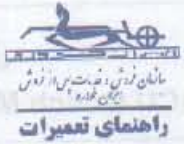 سازمان فروش و خدمات پس از فروش
ایران خودرو
راهنمای تعمیرات